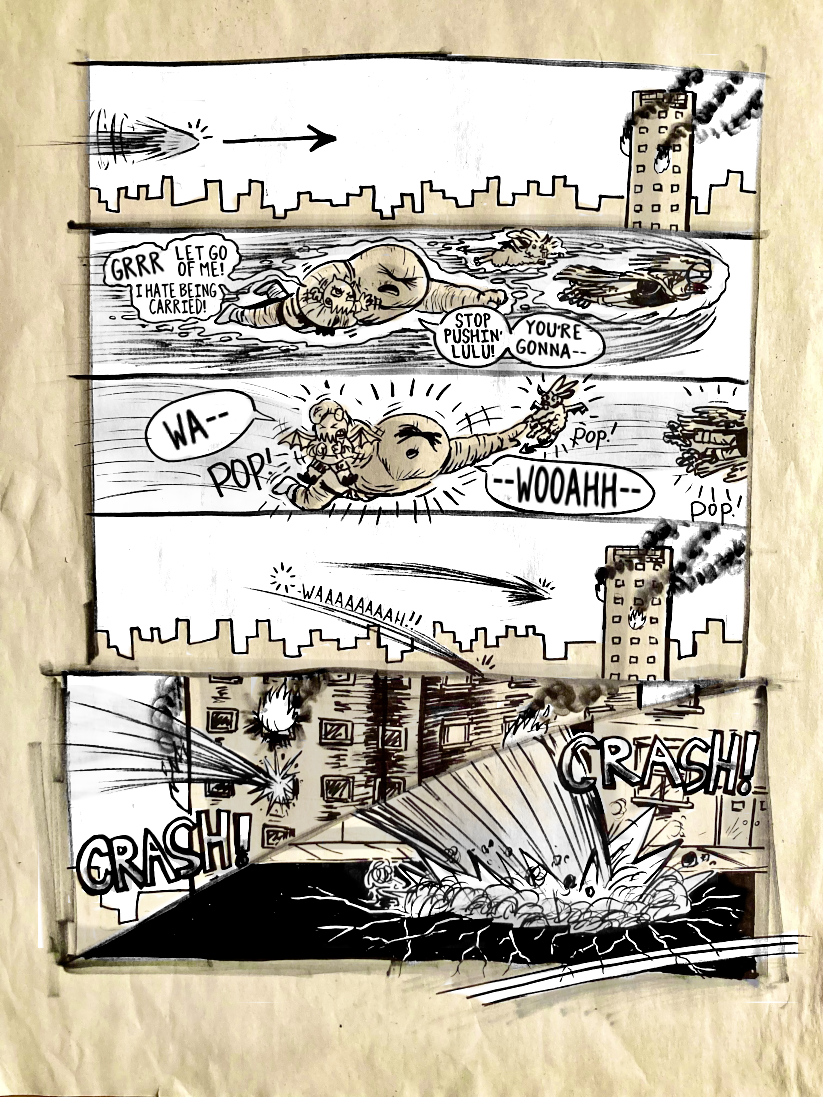 GRRR
LET GO
OF ME!
I HATE BEING
CARRIED!
STOP
PUSHIN'
LULU!
YOU'RE
GONNA--
WA--
POP!
POP!
--WOOAHH--
POP!
-WAAAAAAAAH!!
CRASH!
CRASH!